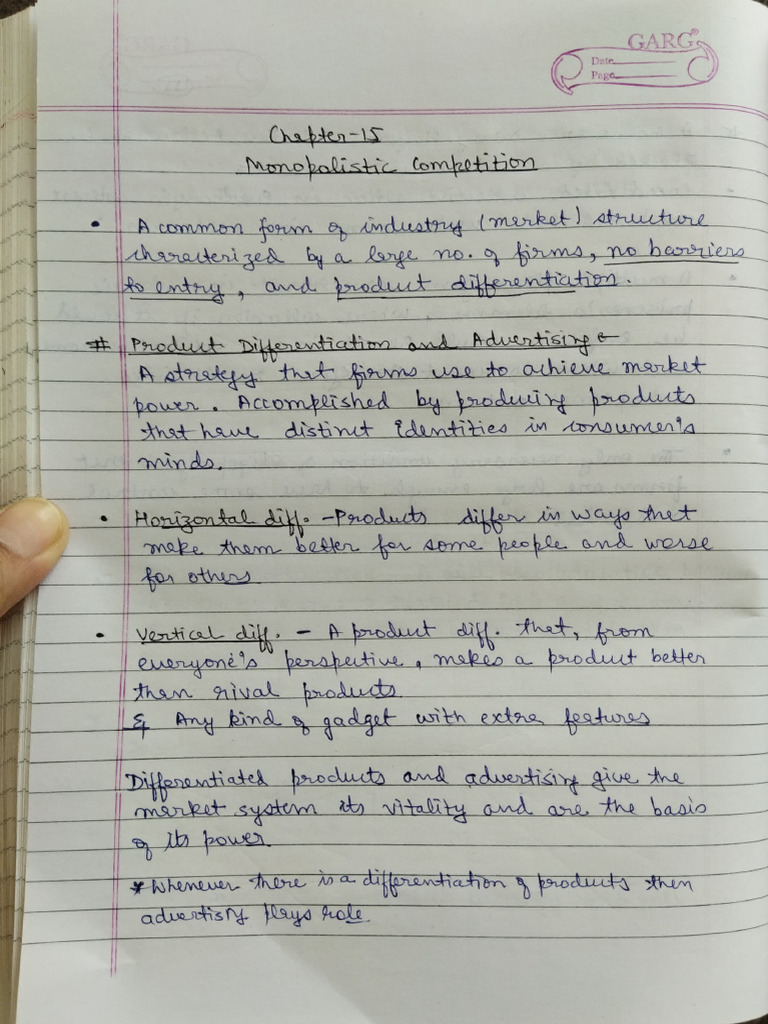 GARG®
Date
Page
Chapter-15
Monopolistic Competition
• A common form of industry (market) structure
characterized by a large no. of firms, no barriers
to entry, and product differentiation.
# Product Differentiation and Advertising
A strategy that firms use to achieve market
power. Accomplished by producing products
that have distinct identities in consumer's
minds.
• Horizontal diff. - Products differ in ways that
make them better for some people and worse
for others
• Vertical diff. - A product diff. that, from
everyone's perspective, makes a product better
than rival products
Any kind of gadget with extra features
Differentiated products and advertising give the
market system its vitality and are the basis
of its power
* Whenever there is a differentiation of products then
advertisng plays role